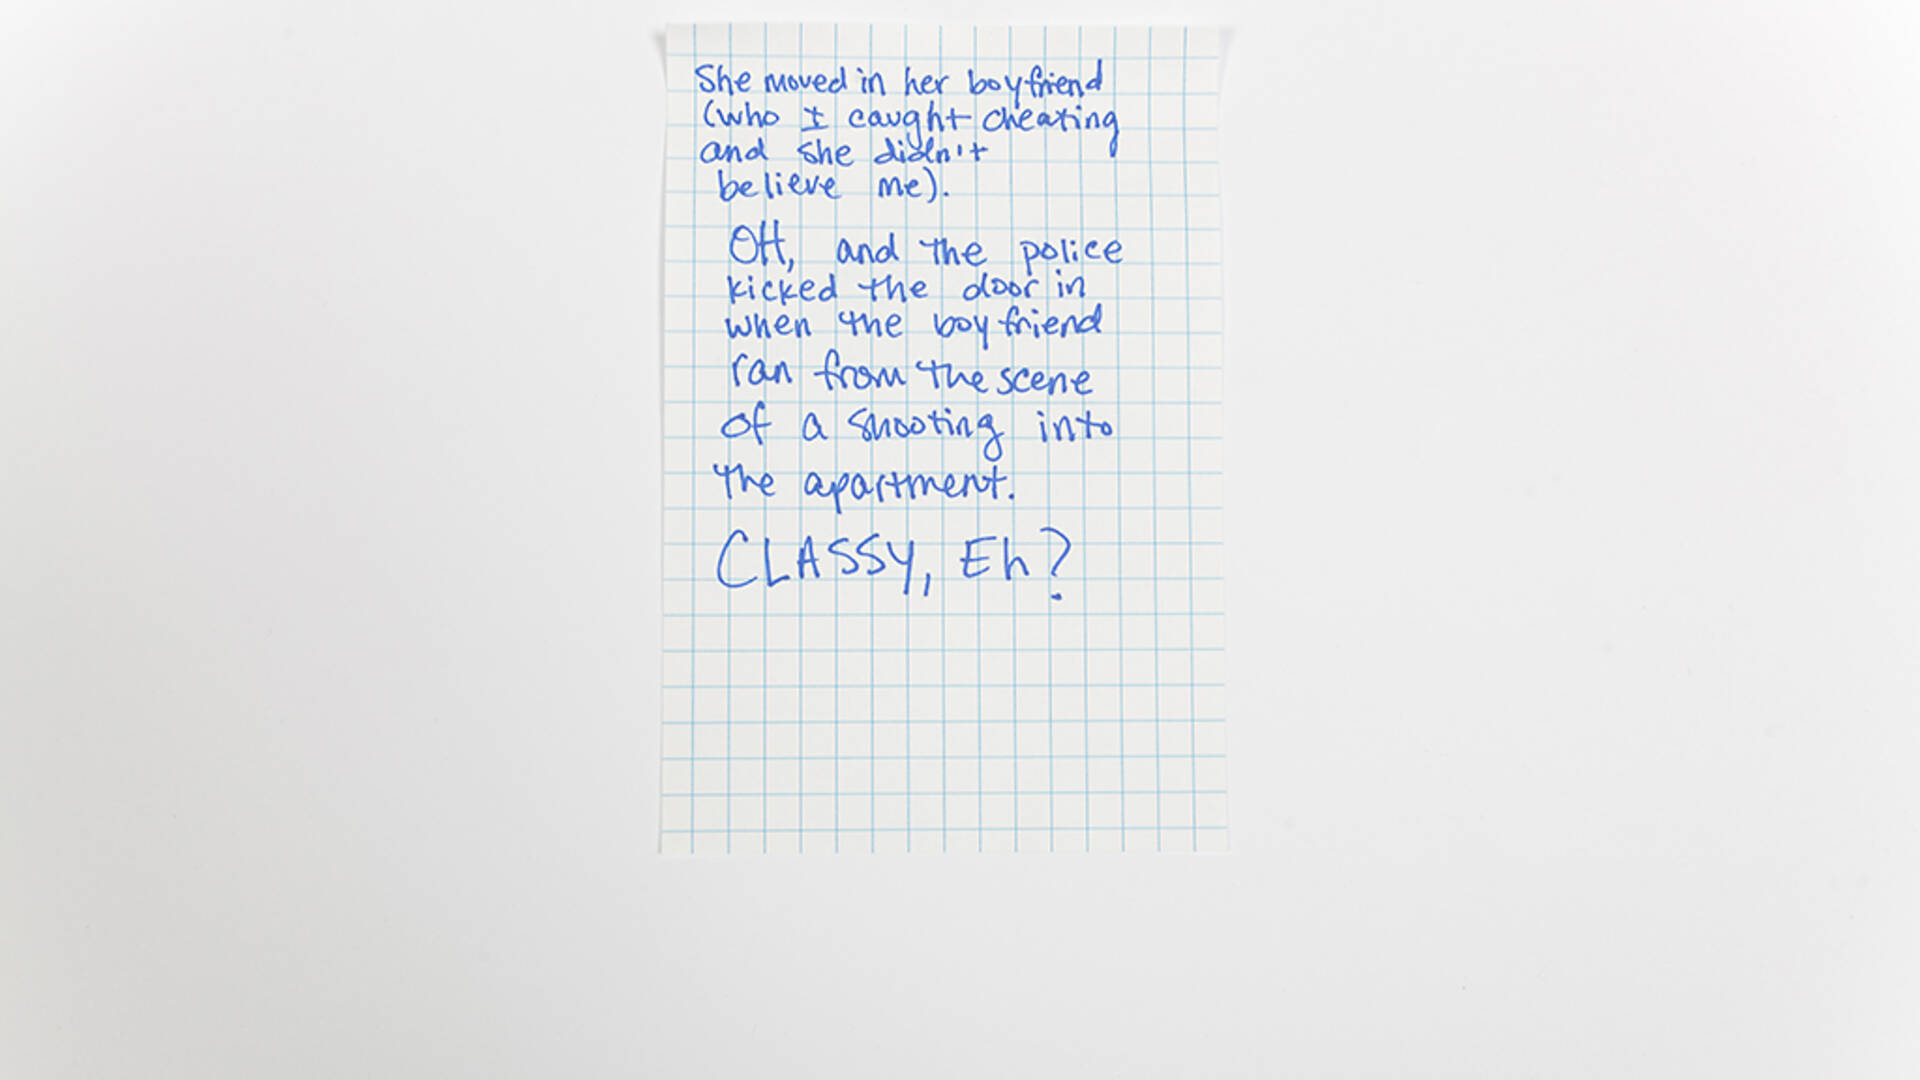 She moved in her boyfriend
(who I caught cheating
and she didn't
believe me).
OH, and the police
kicked the door in
when the boyfriend
ran from the scene
of a shooting into
the apartment.
CLASSY, Eh?